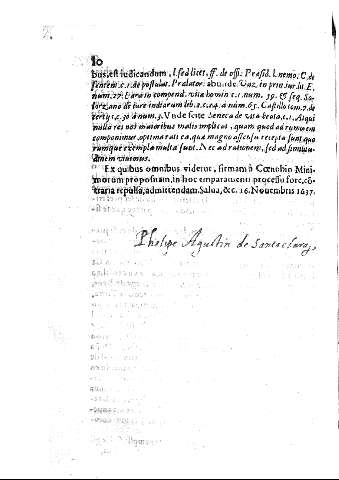 10
bus, est iudicandum, l. sed licet, ff. de offi. Præsid. l. nemo, C. de
sentent. c. 1. de postulat. Prælator. abunde. Vaz. in prin
num. 27. Vara in compend. vitæ homin c. 1. num. 39. & seq. So-
lorzano de iure indiarum lib. 2. c. 24. à num. 65. Castillo tom. 7. de
tertijs c. 30 à num. 3. Vnde scite Seneca de vita beata. c. 1. Atqui
nulla res nos maioribus malis implicat, quam quod ad rumorem
componimur, optima rati ea, quæ magno assensu recepta sunt quo
rumque exempla multa sunt. Nec ad rationem, sed ad similitu-
dinem vivimus.
Ex quibus omnibus videtur, firmam à Cœnobio Mini
morum propositam, in hoc emparamenti processu fore, cõ
traria repulsa, admittendam. Salua, &c. 16. Nouembris 1637.
Phelipe Agustin de Santaclara